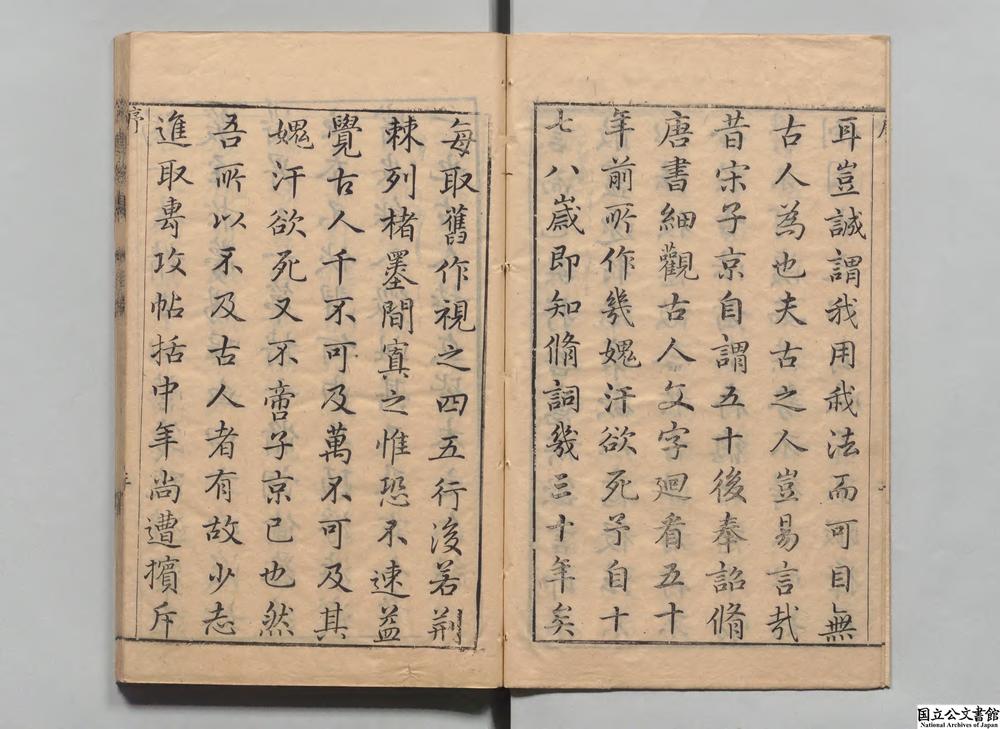 耳豈誠謂我用我法而可目無
古人為也夫古之人豈易言哉
昔宋子京自謂五十後奉詔脩
唐書細觀古人文字廻看五十
年前所作幾媿汗欲死予自十
七八歲即知脩詞幾三十年矣
每取舊作視之四五行後若荆
棘列楮墨間寘之惟恐不速益
覺古人千不可及萬不可及其
媿汗欲死又不啻子京已也然
吾所以不及古人者有故少志
進取專攻帖括中年尚遭擯斥
序
国立公文書館
National Archives of Japan